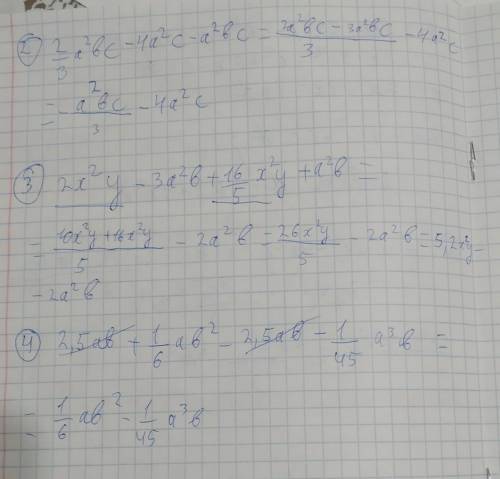 ② 2/3 a²bc - 4a²c - a²bc = (2a²bc - 3a²bc)/3 - 4a²c
= a²bc/3 - 4a²c
③ 2x²y - 3a²b + 16/5 x²y + a²b =
= (10x²y + 16x²y)/5 - 2a²b = 26x²y/5 - 2a²b = 5,2x²y -
- 2a²b
④ 2,5ab + 1/6 ab² - 2,5ab - 1/45 a³b =
= 1/6 ab² - 1/45 a³b